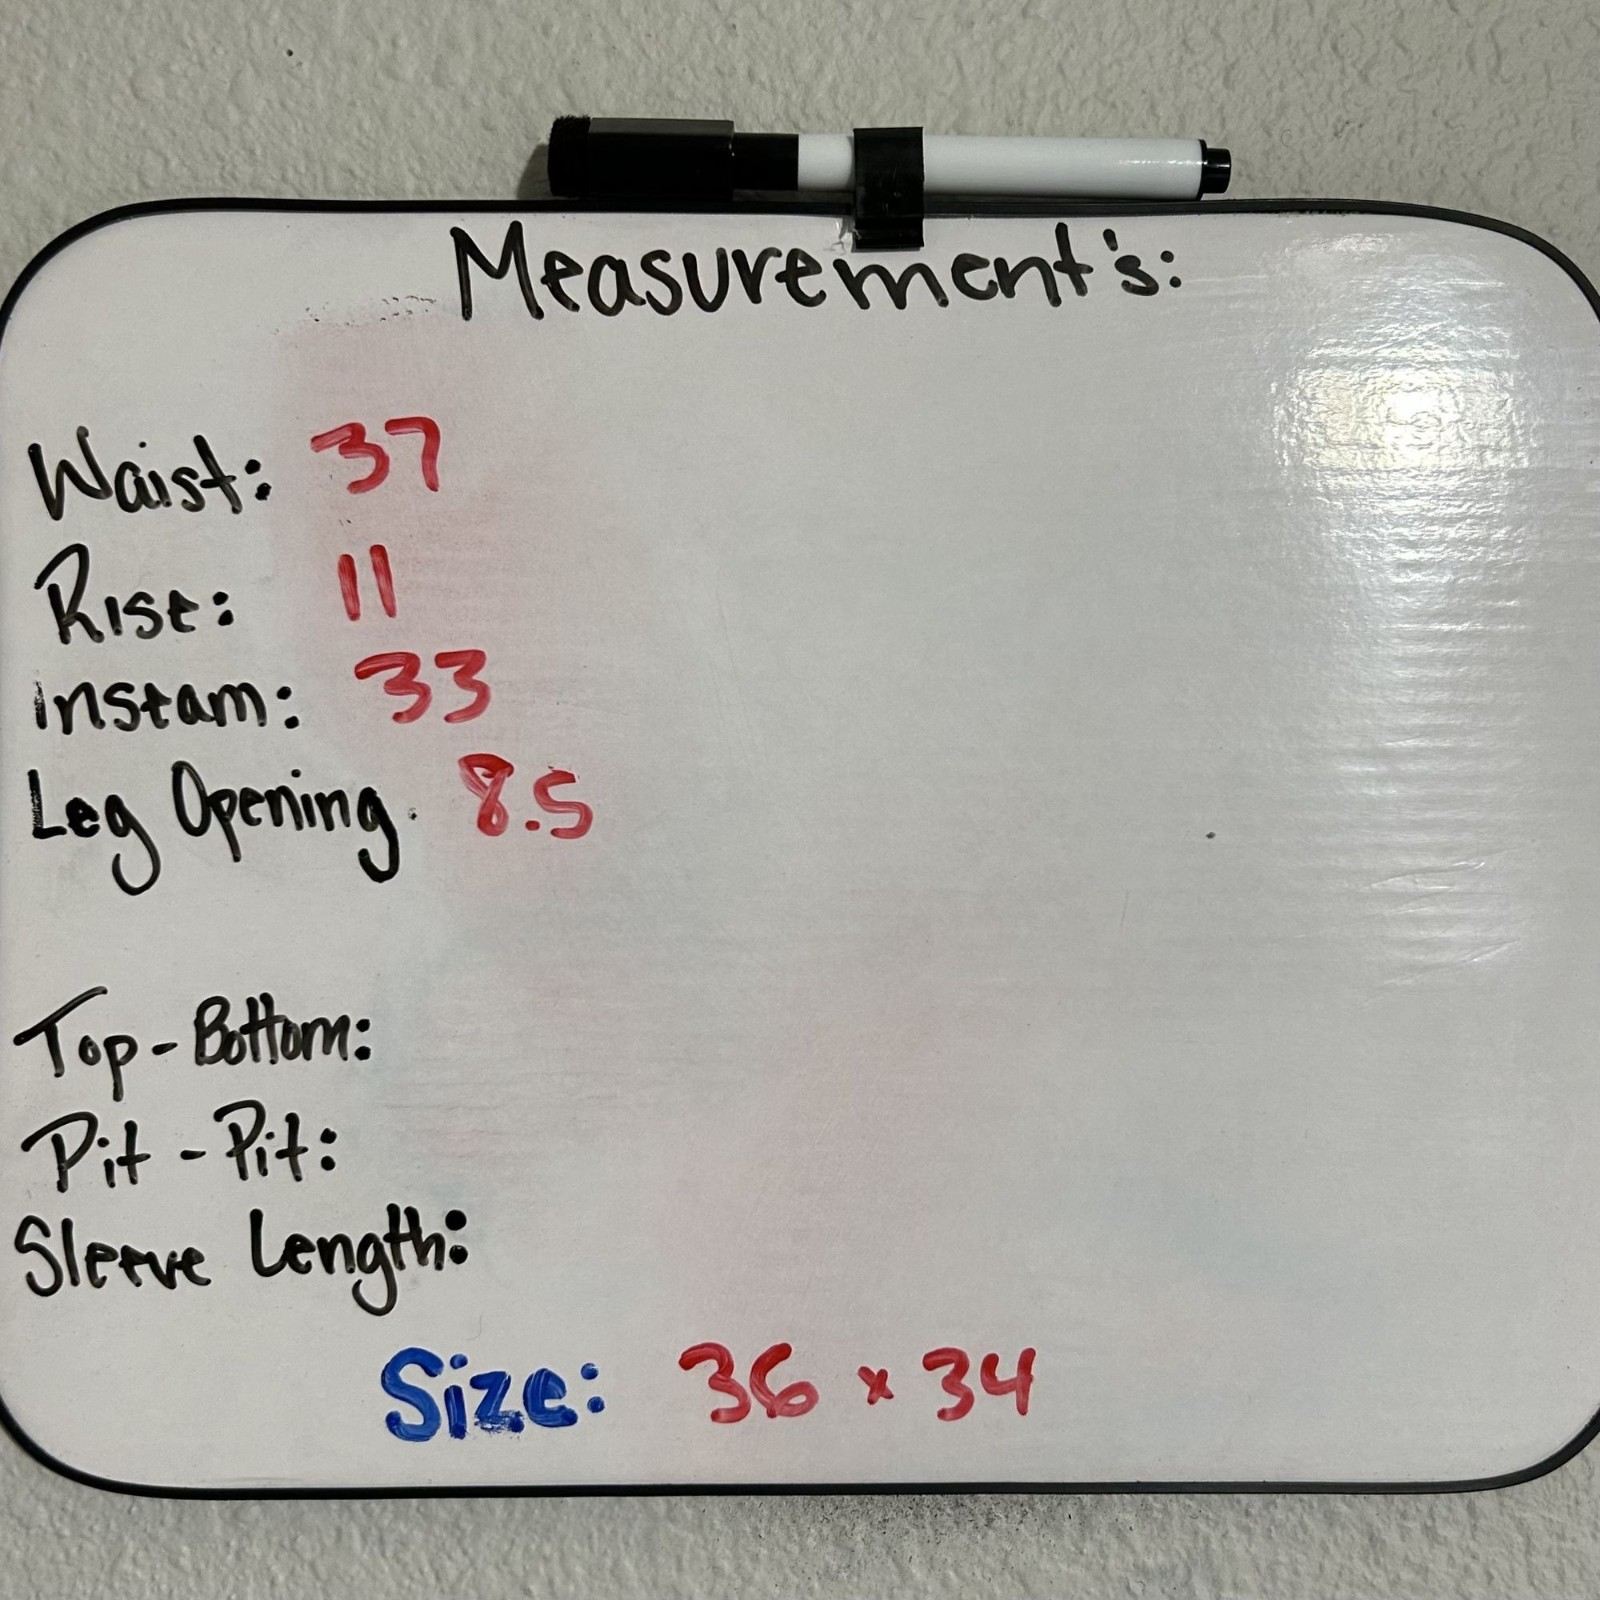 Measurement's:
Waist: 37
Rise: 11
inseam: 33
Leg Opening. 8.5
Top-Bottom:
Pit-Pit:
Sleeve Length:
Size: 36 x 34